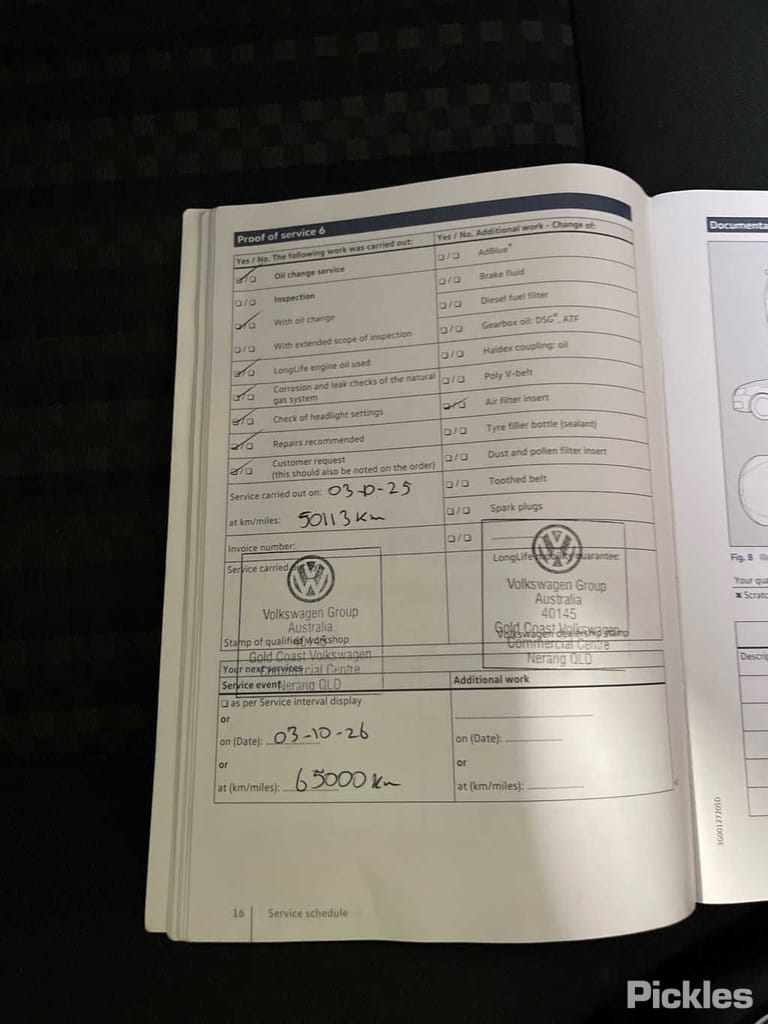 Proof of service 6
Yes / No. The following work was carried out:
☑/☐ Oil change service
☐/☐ Inspection
☑/☐ With oil change
☐/☐ With extended scope of inspection
☑/☐ LongLife engine oil used
☑/☐ Corrosion and leak checks of the natural
gas system
☑/☐ Check of headlight settings
☑/☐ Repairs recommended
☑/☐ Customer request
(this should also be noted on the order)
Service carried out on: 03-10-25
at km/miles: 50113 Km
Invoice number:
Service carried out by:
Volkswagen Group
Australia
40145
Gold Coast Volkswagen
Commercial Centre
Nerang QLD
Stamp of qualified workshop
Yes / No. Additional work - Change of:
☐/☐ AdBlue®
☐/☐ Brake fluid
☐/☐ Diesel fuel filter
☐/☐ Gearbox oil: DSG®, ATF
☐/☐ Haldex coupling: oil
☐/☐ Poly V-belt
☑/☐ Air filter insert
☐/☐ Tyre filler bottle (sealant)
☐/☐ Dust and pollen filter insert
☐/☐ Toothed belt
☐/☐ Spark plugs
☐/☐
LongLife mobility guarantee:
Volkswagen Group
Australia
40145
Gold Coast Volkswagen
Commercial Centre
Nerang QLD
Volkswagen dealership stamp
Your next services
Service event
☐ as per Service interval display
or
on (Date): 03-10-26
or
at (km/miles): 65000 Km
Additional work
on (Date):
or
at (km/miles):
16 Service schedule
Documenta
Fig. 8
Your qua
✖ Scratc
Descrip
3G0012720SD
Pickles